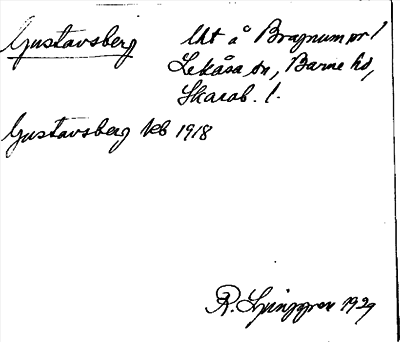 Gustavsberg Ut å Bragnum nr 1
Lekåsa sn, Barne hd,
Skarab. l.
Gustavsberg Keb 1918
R. Ljunggren 1929